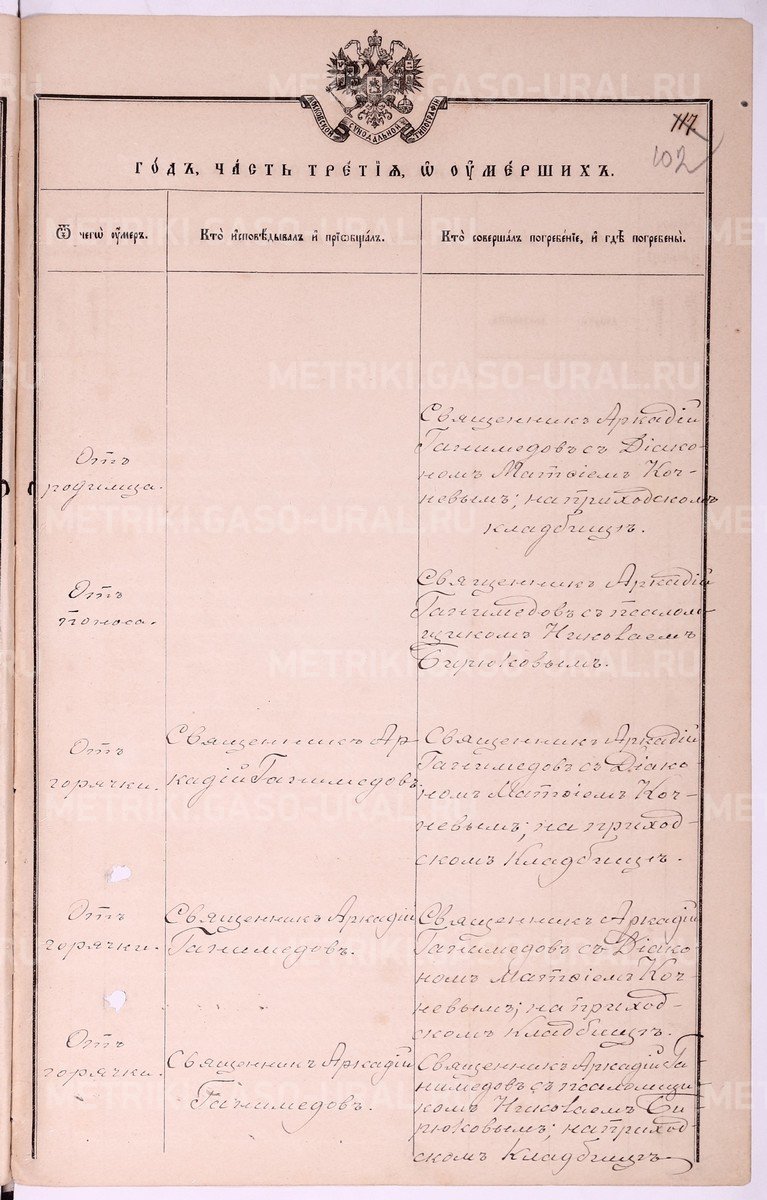 МОСКОВСКОЙ СѴНОДАЛЬНОЙ ТИПОГРАФІИ
117
102
ГОДЪ, ЧАСТЬ ТРЕТІЯ, Ѡ ОУМЕРШИХЪ.
Ѿ чегѡ оумеръ.
Кто исповѣдывалъ и прїѡбщалъ.
Кто совершалъ погребенїе, и гдѣ погребены.
Отъ
родимца.
Священникъ Аркадій
Ганимедовъ съ Діако-
номъ Матѳіемъ Коч-
невымъ; на приходскомъ
кладбищѣ.
Отъ
поноса.
Священникъ Аркадій
Ганимедовъ съ псалом-
щикомъ Николаемъ
Бирюковымъ.
Отъ
горячки.
Священникъ Ар-
кадій Ганимедовъ.
Священникъ Аркадій
Ганимедовъ съ Діако
номъ Матѳіемъ Коч-
невымъ; на приход-
скомъ кладбищѣ.
Отъ
горячки.
Священникъ Аркадій
Ганимедовъ.
Священникъ Аркадій
Ганимедовъ съ Діако
номъ Матѳіемъ Коч-
невымъ; на приход-
скомъ кладбищѣ.
Отъ
горячки.
Священникъ Аркадій
Ганимедовъ.
Священникъ Аркадій Га-
нимедовъ съ псаломщи
комъ Николаемъ Би-
рюковымъ; на приход
скомъ кладбищѣ
METRIKI.GASO-URAL.RU